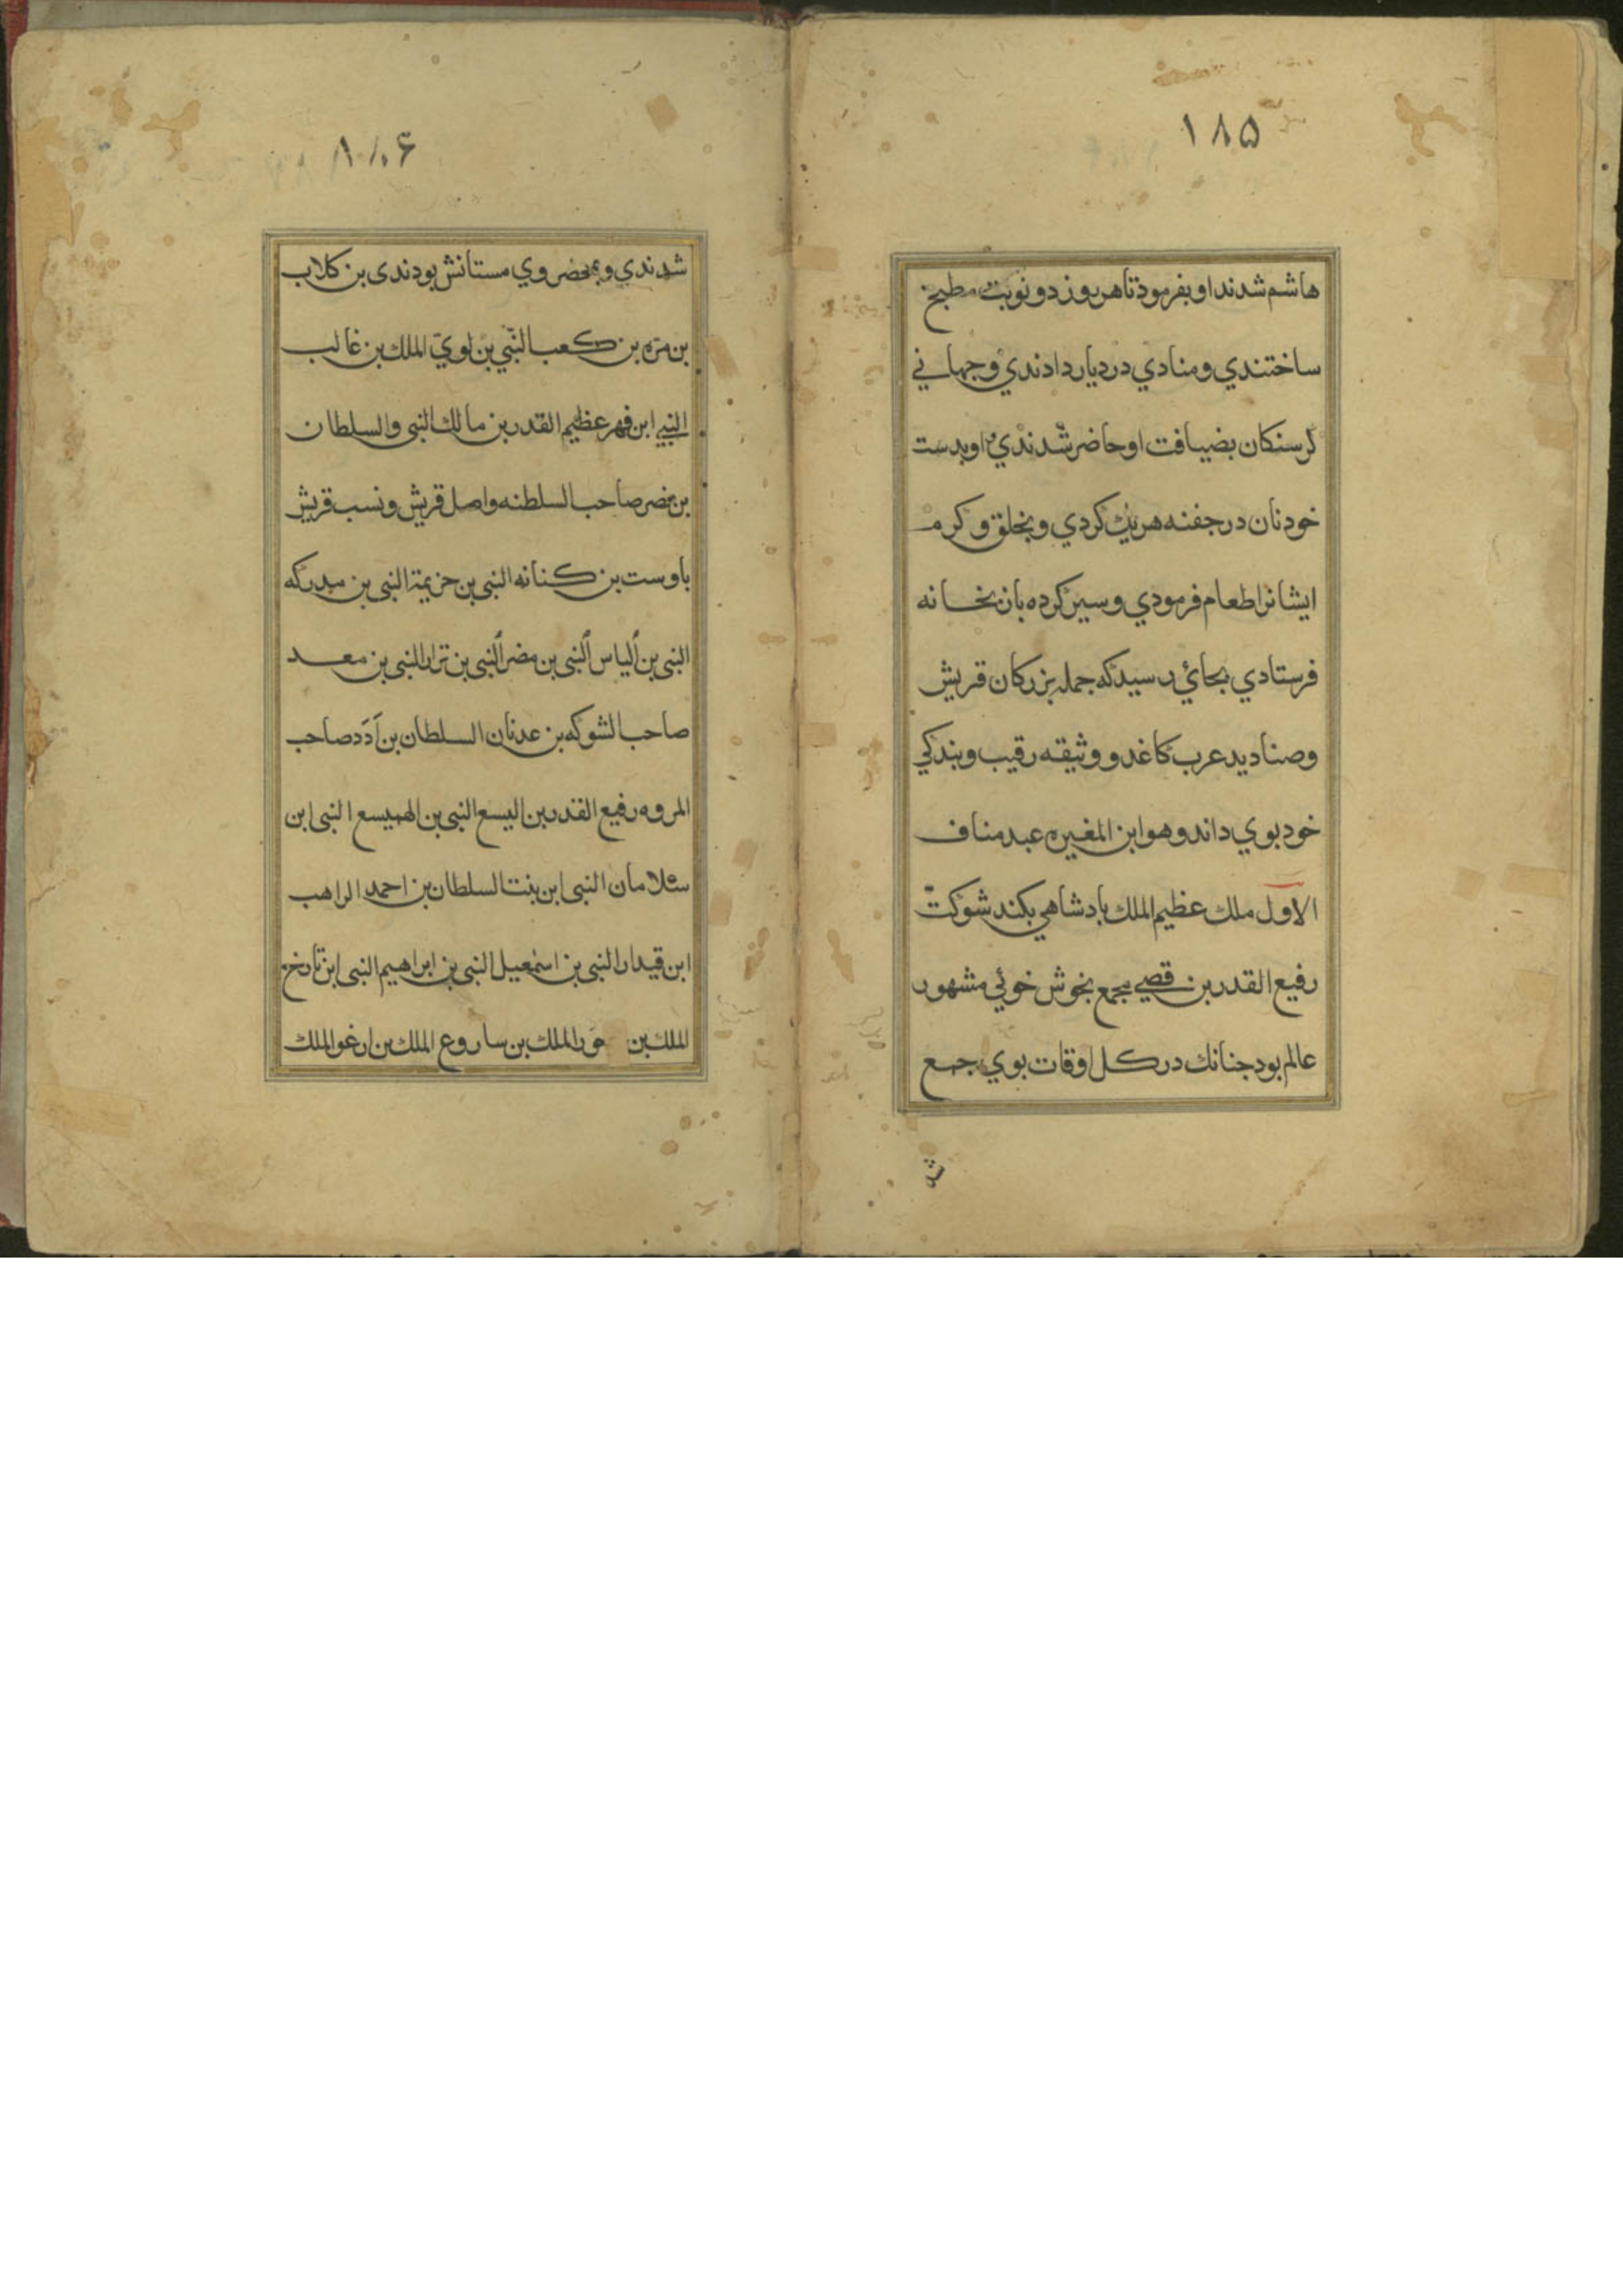 ۱۸۵
هاشم شدند او بفرمود تا هر روز دو نوبت مطبخ
ساختندي و منادي در ديار دادندي و جهاني
كرسنكان بضيافت او حاضر شدندي او بدست
خود نان در جفنه هر يك كردي و بخلق و كرم
ايشانرا طعام فرمودي و سير كرده بان بخانه
فرستادي بجائي رسيد كه جمله بزركان قريش
وصناديد عرب كاغد و وثيقه رقيب و بندكي
خود بوي داند وهو ابن المغيره عبد مناف
الاول ملك عظيم الملك بادشاهي بكند شوكت
رفيع القدر بن قصي مجمع بخوش خوئي مشهور
عالم بود جنانك در كل اوقات بوي جمع
شد
۱۸۶
شدندي و بمحضر وي مستانش بودندى بن كلاب
بن مره بن كعب النبي بن لوي الملك بن غالب
النبي ابن فهر عظيم القدر بن مالك النبى والسلطان
بن نضر صاحب السلطنه واصل قريش و نسب قريش
باوست بن كنانه النبى بن خزيمة النبى بن مدركه
النبى بن ألياس ألنبى بن مضر ألنبى بن نزار النبى بن معد
صاحب الشوكه بن عدنان السلطان بن أدد صاحب
المروه رفيع القدر بن اليسع النبى بن الهميسع النبى ابن
سلامان النبى ابن بنت السلطان بن احمد الراهب
ابن قيدار النبى بن اسمعيل النبى بن ابراهيم النبى ابن تارخ
الملك بن الملك بن ساروع الملك بن ارغو الملك